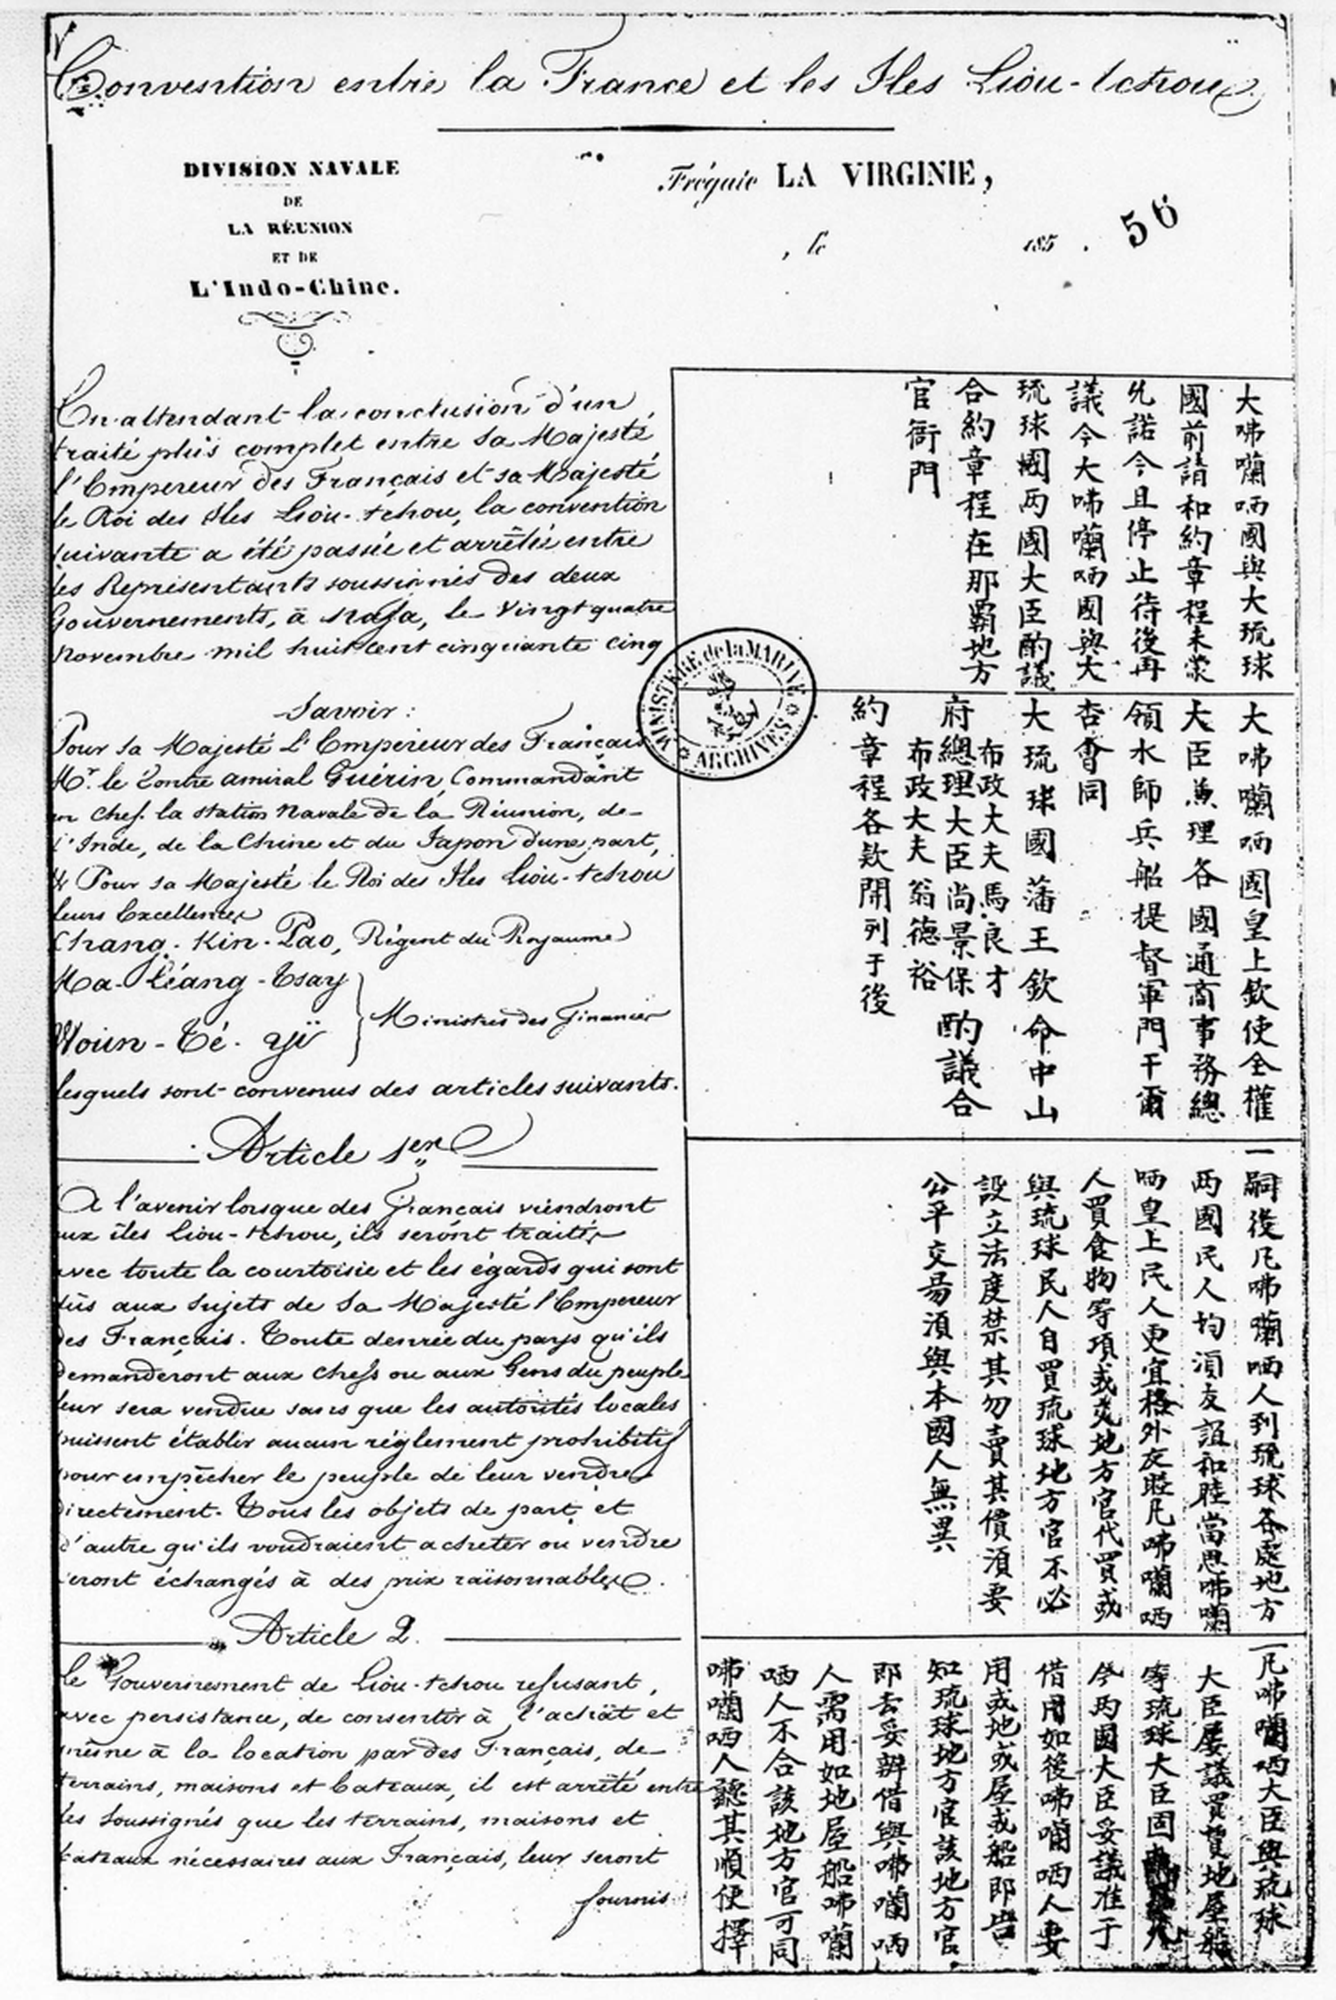 Convention entre la France et les Iles Liou-tchou
DIVISION NAVALE
DE
LA RÉUNION
ET DE
L'Indo-Chine.
Frégate LA VIRGINIE,
, le 185 .
56
En attendant la conclusion d'un
traité plus complet entre Sa Majesté
l'Empereur des Français et sa Majesté
le Roi des Iles Liou-tchou, la convention
suivante a été passée et arrêtée entre
les Représentants soussignés des deux
Gouvernements, à Nafa, le Vingt quatre
novembre mil huit cent cinquante cinq
Savoir:
Pour Sa Majesté L'Empereur des Français
Mr. le Contre amiral Guérin, Commandant
en chef la station Navale de la Réunion, de
l'Inde, de la Chine et du Japon d'une part,
Et Pour Sa Majesté le Roi des Iles Liou-tchou
leurs Excellences
Chang-Kin-Pao, Régent du Royaume
Ma-Léang-Tsay
Woun-Té-Yü
Ministres des Finances
lesquels sont convenus des articles suivants.
Article 1er
A l'avenir lorsque des Français viendront
aux îles Liou-tchou, ils seront traités
avec toute la courtoisie et les égards qui sont
dûs aux sujets de Sa Majesté l'Empereur
des Français. Toute denrée du pays qu'ils
demanderont aux chefs ou aux Gens du peuple
leur sera vendue sans que les autorités locales
puissent établir aucun réglement prohibitif
pour empêcher le peuple de leur vendre
directement. Tous les objets de part et
d'autre qu'ils voudraient acheter ou vendre
seront échangés à des prix raisonnables.
Article 2.
Le Gouvernement de Liou-tchou refusant,
avec persistance, de consentir à l'achat et
même à la location par des Français, de
terrains, maisons et bateaux, il est arrêté entre
les Soussignés que les terrains, maisons et
bateaux nécessaires aux Français, leur seront
fournis
大咈囒哂國與大琉球
國前請和約章程未蒙
允諾今且停止待後再
議今大咈囒哂國與大
琉球國両國大臣酌議
合約章程在那霸地方
官衙門
MINISTÈRE de la MARINE
ARCHIVES
大咈囒哂國皇上欽使全權
大臣兼理各國通商事務總
領水師兵船提督軍門干爾
杏會同
大琉球國藩王欽命中山
府總理大臣尚景保
布政大夫馬良才
布政大夫翁德裕
酌議合
約章程各欵開列于後
一嗣後凡咈囒哂人到琉球各處地方
両國民人均須友誼和睦當思咈囒
哂皇上民人更宜格外友睦凡咈囒哂
人買食物等項或尋地方官代買或
與琉球民人自買琉球地方官不必
設立法度禁其勿賣其價須要
公平交易須與本國人無異
一凡咈囒哂大臣與琉球
大臣屢議買賃地屋船
等琉球大臣固
今両國大臣妥議准于
借用如後咈囒哂人要
用或地或屋或船即告
知琉球地方官該地方官
即去妥辦借與咈囒哂
人需用如地屋船咈囒
哂人不合該地方官可同
咈囒哂人聽其順便擇